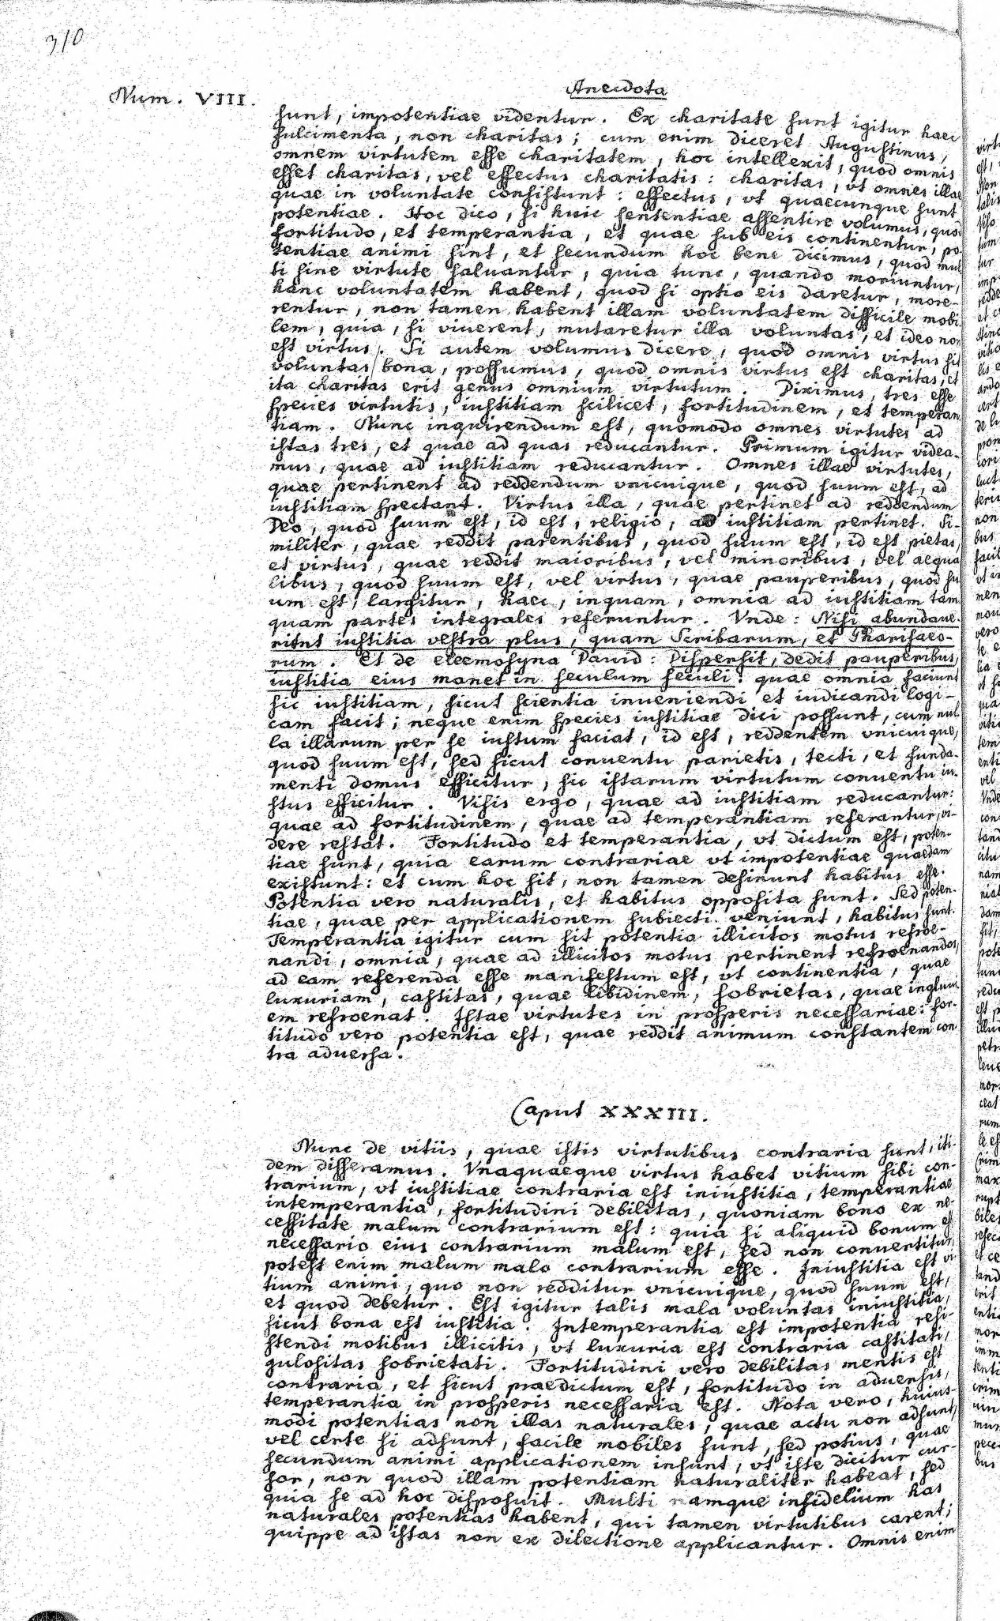 310
Num. VIII.
Anecdota
sunt, impotentiae videntur. Ex charitate sunt igitur haec
fulcimenta, non charitas; cum enim diceret Augustinus,
omnem virtutem esse charitatem, hoc intellexit, quod omnis
esset charitas, vel effectus charitatis: charitas, vt omnes illae
quae in voluntate consistunt: effectus, vt quaecunque sunt
potentiae. Hoc dico, si huic sententiae assentire volumus, quod
fortitudo, et temperantia, et quae sub eis continentur, po-
tentiae animi sint, et secundum hoc bene dicimus, quod mul
ti sine virtute saluantur, quia tunc, quando moriuntur,
hanc voluntatem habent, quod si optio eis daretur, more-
rentur, non tamen habent illam voluntatem difficile mobi
lem, quia, si viuerent, mutaretur illa voluntas, et ideo non
est virtus. Si autem volumus dicere, quod omnis virtus sit
voluntas bona, possumus, quod omnis virtus est charitas, et
ita charitas erit genus omnium virtutum. Diximus, tres esse
species virtutis, iustitiam scilicet, fortitudinem, et temperan
tiam. Nunc inquirendum est, quomodo omnes virtutes ad
istas tres, et quae ad quas reducantur. Primum igitur videa-
mus, quae ad iustitiam reducantur. Omnes illae virtutes,
quae pertinent ad reddendum vnicuique, quod suum est, ad
iustitiam spectant. Virtus illa, quae pertinet ad reddendum
Deo, quod suum est, id est, religio, ad iustitiam pertinet. Si-
militer, quae reddit parentibus, quod suum est, id est pietas,
et virtus, quae reddit maioribus, vel minoribus, vel aequa
libus, quod suum est, vel virtus, quae pauperibus, quod su
um est, largitur, haec, inquam, omnia ad iustitiam tam
quam partes integrales referuntur. Vnde: Nisi abundaue-
ritnt iustitia vestra plus, quam Scribarum, et Pharisaeo-
rum. Et de eleemosyna Dauid: Dispersit, dedit pauperibus,
iustitia eius manet in seculum seculi: quae omnia faciunt
sic iustitiam, sicut scientia inueniendi et iudicandi logi-
cam facit; neque enim species iustitiae dici possunt, cum nul
la illarum per se iustum faciat, id est, reddentem vnicuique,
quod suum est, sed sicut conuentu parietis, tecti, et funda-
menti domus efficitur, sic istarum virtutum conuentu iu-
stus efficitur. Visis ergo, quae ad iustitiam reducantur:
quae ad fortitudinem, quae ad temperantiam referantur, vi-
dere restat. Fortitudo et temperantia, vt dictum est, poten-
tiae sunt, quia earum contrariae vt impotentiae quaedam
existunt: et cum hoc sit, non tamen desinunt habitus esse.
Potentia vero naturalis, et habitus opposita sunt. Sed poten-
tiae, quae per applicationem subiecti veniunt, habitus sunt.
Temperantia igitur cum sit potentia illicitos motus refroe-
nandi, omnia, quae ad illicitos motus pertinent refroenandos,
ad eam referenda esse manifestum est, vt continentia, quae
luxuriam, castitas, quae libidinem, sobrietas, quae ingluui
em refroenat. Istae virtutes in prosperis necessariae: for-
titudo vero potentia est, quae reddit animum constantem con
tra aduersa.
Caput XXXIII.
Nunc de vitiis, quae istis virtutibus contraria sunt, iti-
dem disseramus. Vnaquaeque virtus habet vitium sibi con-
trarium, vt iustitiae contraria est iniustitia, temperantiae
intemperantia, fortitudini debilitas, quoniam bono ex ne-
cessitate malum contrarium est: quia si aliquid bonum est
necessario eius contrarium malum est, sed non conuertitur,
potest enim malum malo contrarium esse. Iniustitia est vi
tium animi, quo non redditur vnicuique, quod suum est,
et quod debetur. Est igitur talis mala voluntas iniustitia,
sicut bona est iustitia. Intemperantia est impotentia resi-
stendi motibus illicitis, vt luxuria est contraria castitati,
gulositas sobrietati. Fortitudini vero debilitas mentis est
contraria, et sicut praedictum est, fortitudo in aduersis,
temperantia in prosperis necessaria est. Nota vero, huius-
modi potentias non illas naturales, quae actu non adsunt,
vel certe si adsunt, facile mobiles sunt, sed potius, quae
secundum animi applicationem insunt, vt iste dicitur cur-
sor, non quod illam potentiam naturaliter habeat, sed
quia se ad hoc disposuit. Multi namque infidelium has
naturales potentias habent, qui tamen virtutibus carent;
quippe ad istas non ex dilectione applicantur. Omnis enim